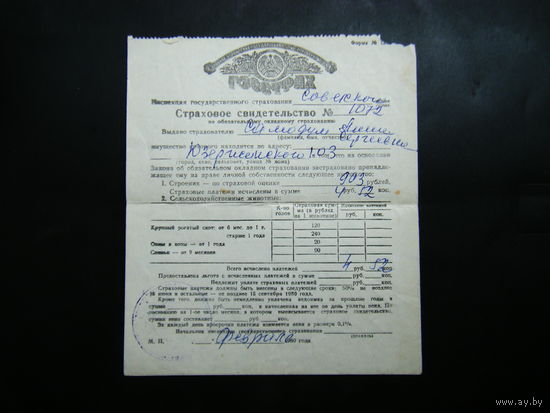 Форма №
ГОССТРАХ
Инспекция государственного страхования Советского
Страховое свидетельство № 1072
по обязательному окладному страхованию
Выдано страхователю Анне
(фамилия, имя, отчество) Сергеевне
имущество которого находится по адресу:
Дзержинского 103 на основании
(город, село, сельсовет, улица № дома)
Закона об обязательном окладном страховании застраховано принадлежащее ему на праве личной собственности следующее имущество:
1. Строения — по страховой оценке 993 рублей,
Страховые платежи исчислены в сумме 4 руб. 52 коп.
2. Сельскохозяйственные животные:
К-во голов
Страховая сумма (в рублях на 1 животное)
руб. коп.
Крупный рогатый скот: от 6 мес. до 1 г. 120
старше 1 года 240
Овцы и козы — от 1 года 20
Свиньи — от 9 месяцев 90
Всего исчислено платежей 4 руб. 52 коп.
Предоставлена льгота с исчисленных платежей в сумме руб. коп.
Подлежит уплате страховых платежей руб. коп.
Страховые платежи должны быть внесены в следующие сроки: 50% не позднее
июня и остальные — не позднее 15 сентября 1980 года.
Кроме того должна быть немедленно уплачена недоимка за прошлые годы в
сумме руб. коп. и начисленная на нее по день уплаты пеня. По
состоянию на 1-ое число месяца, в котором выписывается страховое свидетельство, сумма
пени составляет руб. коп.
За каждый день просрочки платежа взимается пеня в размере 0,1%.
Начальник инспекции государственного страхования
(подпись)
М. П. Февраля 1980 года
www.ay.by